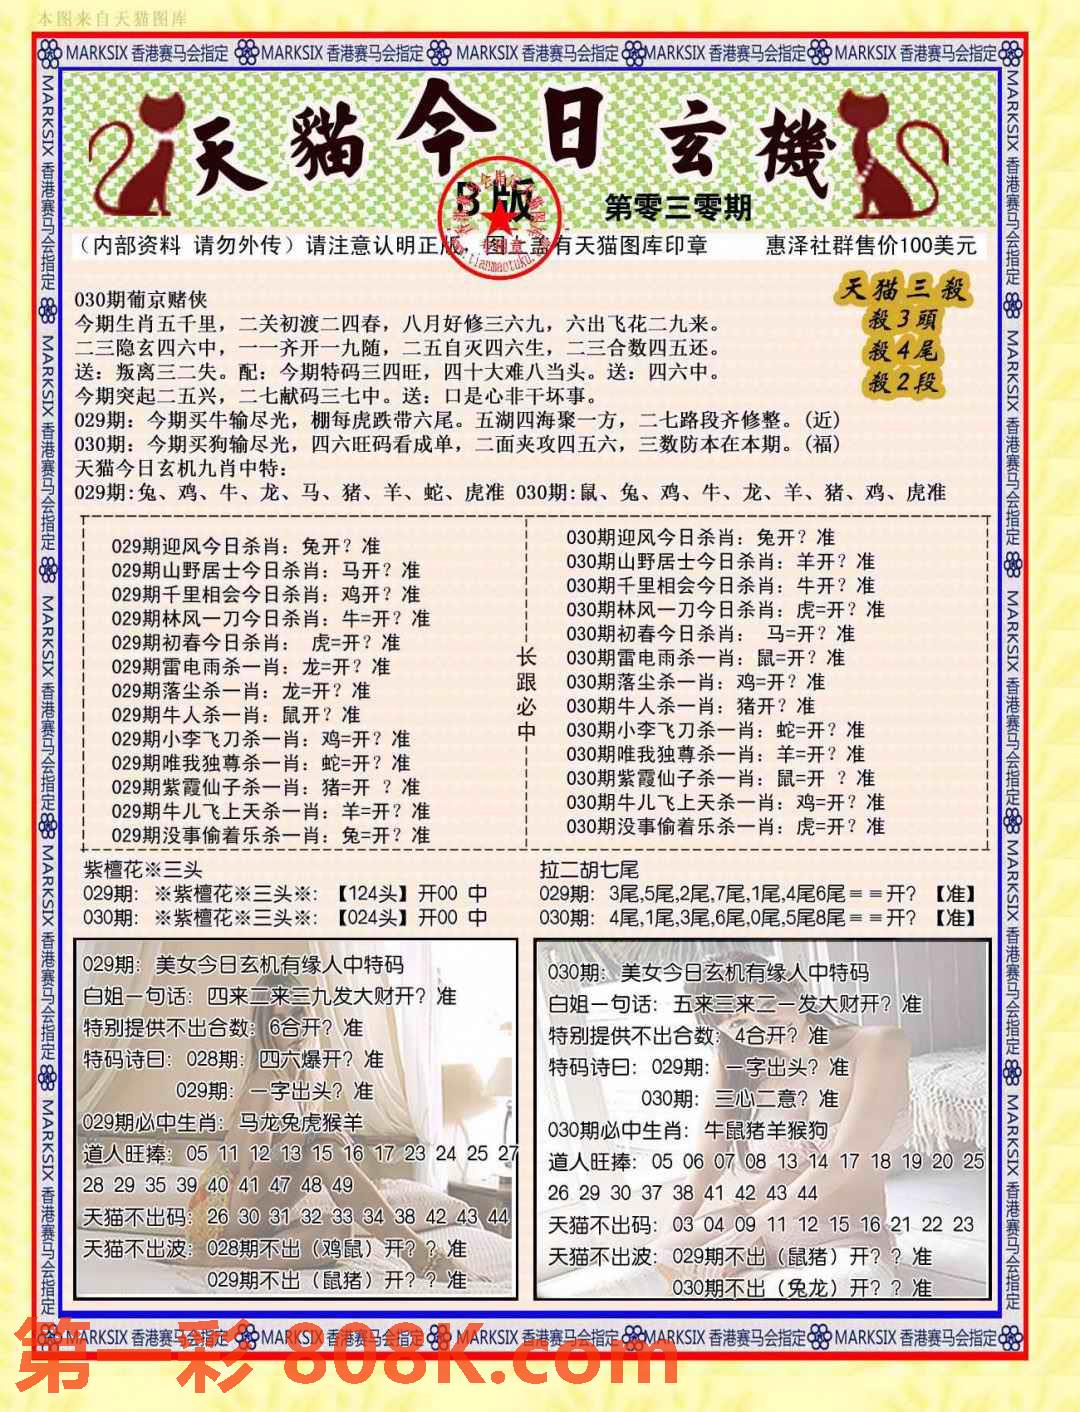 本图来自天猫图库
MARKSIX 香港赛马会指定 MARKSIX 香港赛马会指定 MARKSIX 香港赛马会指定 MARKSIX 香港赛马会指定 MARKSIX 香港赛马会指定
天貓今日玄機
B版
第零三零期
(内部资料 请勿外传)请注意认明正版,图上盖有天猫图库印章 惠泽社群售价100美元
天猫三殺
殺3頭
殺4尾
殺2段
030期葡京赌侠
今期生肖五千里,二关初渡二四春,八月好修三六九,六出飞花二九来。
二三隐玄四六中,一一齐开一九随,二五自灭四六生,二三合数四五还。
送:叛离三二失。配:今期特码三四旺,四十大难八当头。送:四六中。
今期突起二五兴,二七献码三七中。送:口是心非干坏事。
029期:今期买牛输尽光,棚每虎跌带六尾。五湖四海聚一方,二七路段齐修整。(近)
030期:今期买狗输尽光,四六旺码看成单,二面夹攻四五六,三数防本在本期。(福)
天猫今日玄机九肖中特:
029期:兔、鸡、牛、龙、马、猪、羊、蛇、虎准 030期:鼠、兔、鸡、牛、龙、羊、猪、鸡、虎准
029期迎风今日杀肖:兔开?准
029期山野居士今日杀肖:马开?准
029期千里相会今日杀肖:鸡开?准
029期林风一刀今日杀肖:牛=开?准
029期初春今日杀肖: 虎=开?准
029期雷电雨杀一肖:龙=开?准
029期落尘杀一肖:龙=开?准
029期牛人杀一肖:鼠开?准
029期小李飞刀杀一肖:鸡=开?准
029期唯我独尊杀一肖:蛇=开?准
029期紫霞仙子杀一肖:猪=开 ?准
029期牛儿飞上天杀一肖:羊=开?准
029期没事偷着乐杀一肖:兔=开?准
长跟必中
030期迎风今日杀肖:兔开?准
030期山野居士今日杀肖:羊开?准
030期千里相会今日杀肖:牛开?准
030期林风一刀今日杀肖:虎=开?准
030期初春今日杀肖: 马=开?准
030期雷电雨杀一肖:鼠=开?准
030期落尘杀一肖:鸡=开?准
030期牛人杀一肖:猪开?准
030期小李飞刀杀一肖:蛇=开?准
030期唯我独尊杀一肖:羊=开?准
030期紫霞仙子杀一肖:鼠=开 ?准
030期牛儿飞上天杀一肖:鸡=开?准
030期没事偷着乐杀一肖:虎=开?准
紫檀花※三头
029期:※紫檀花※三头※:【124头】开00 中
030期:※紫檀花※三头※:【024头】开00 中
拉二胡七尾
029期:3尾,5尾,2尾,7尾,1尾,4尾6尾==开?【准】
030期:4尾,1尾,3尾,6尾,0尾,5尾8尾==开?【准】
029期:美女今日玄机有缘人中特码
白姐一句话:四来二来三九发大财开?准
特别提供不出合数:6合开?准
特码诗曰:028期:四六爆开?准
029期:一字出头?准
029期必中生肖:马龙兔虎猴羊
道人旺捧:05 11 12 13 15 16 17 23 24 25 27
28 29 35 39 40 41 47 48 49
天猫不出码:26 30 31 32 33 34 38 42 43 44
天猫不出波:028期不出(鸡鼠)开??准
029期不出(鼠猪)开??准
030期:美女今日玄机有缘人中特码
白姐一句话:五来三来二一发大财开?准
特别提供不出合数:4合开?准
特码诗曰:029期:一字出头?准
030期:三心二意?准
030期必中生肖:牛鼠猪羊猴狗
道人旺捧:05 06 07 08 13 14 17 18 19 20 25
26 29 30 37 38 41 42 43 44
天猫不出码:03 04 09 11 12 15 16 21 22 23
天猫不出波:029期不出(鼠猪)开??准
030期不出(兔龙)开??准
MARKSIX 香港赛马会指定 MARKSIX 香港赛马会指定 MARKSIX 香港赛马会指定 MARKSIX 香港赛马会指定 MARKSIX 香港赛马会指定
第一彩 808K.com